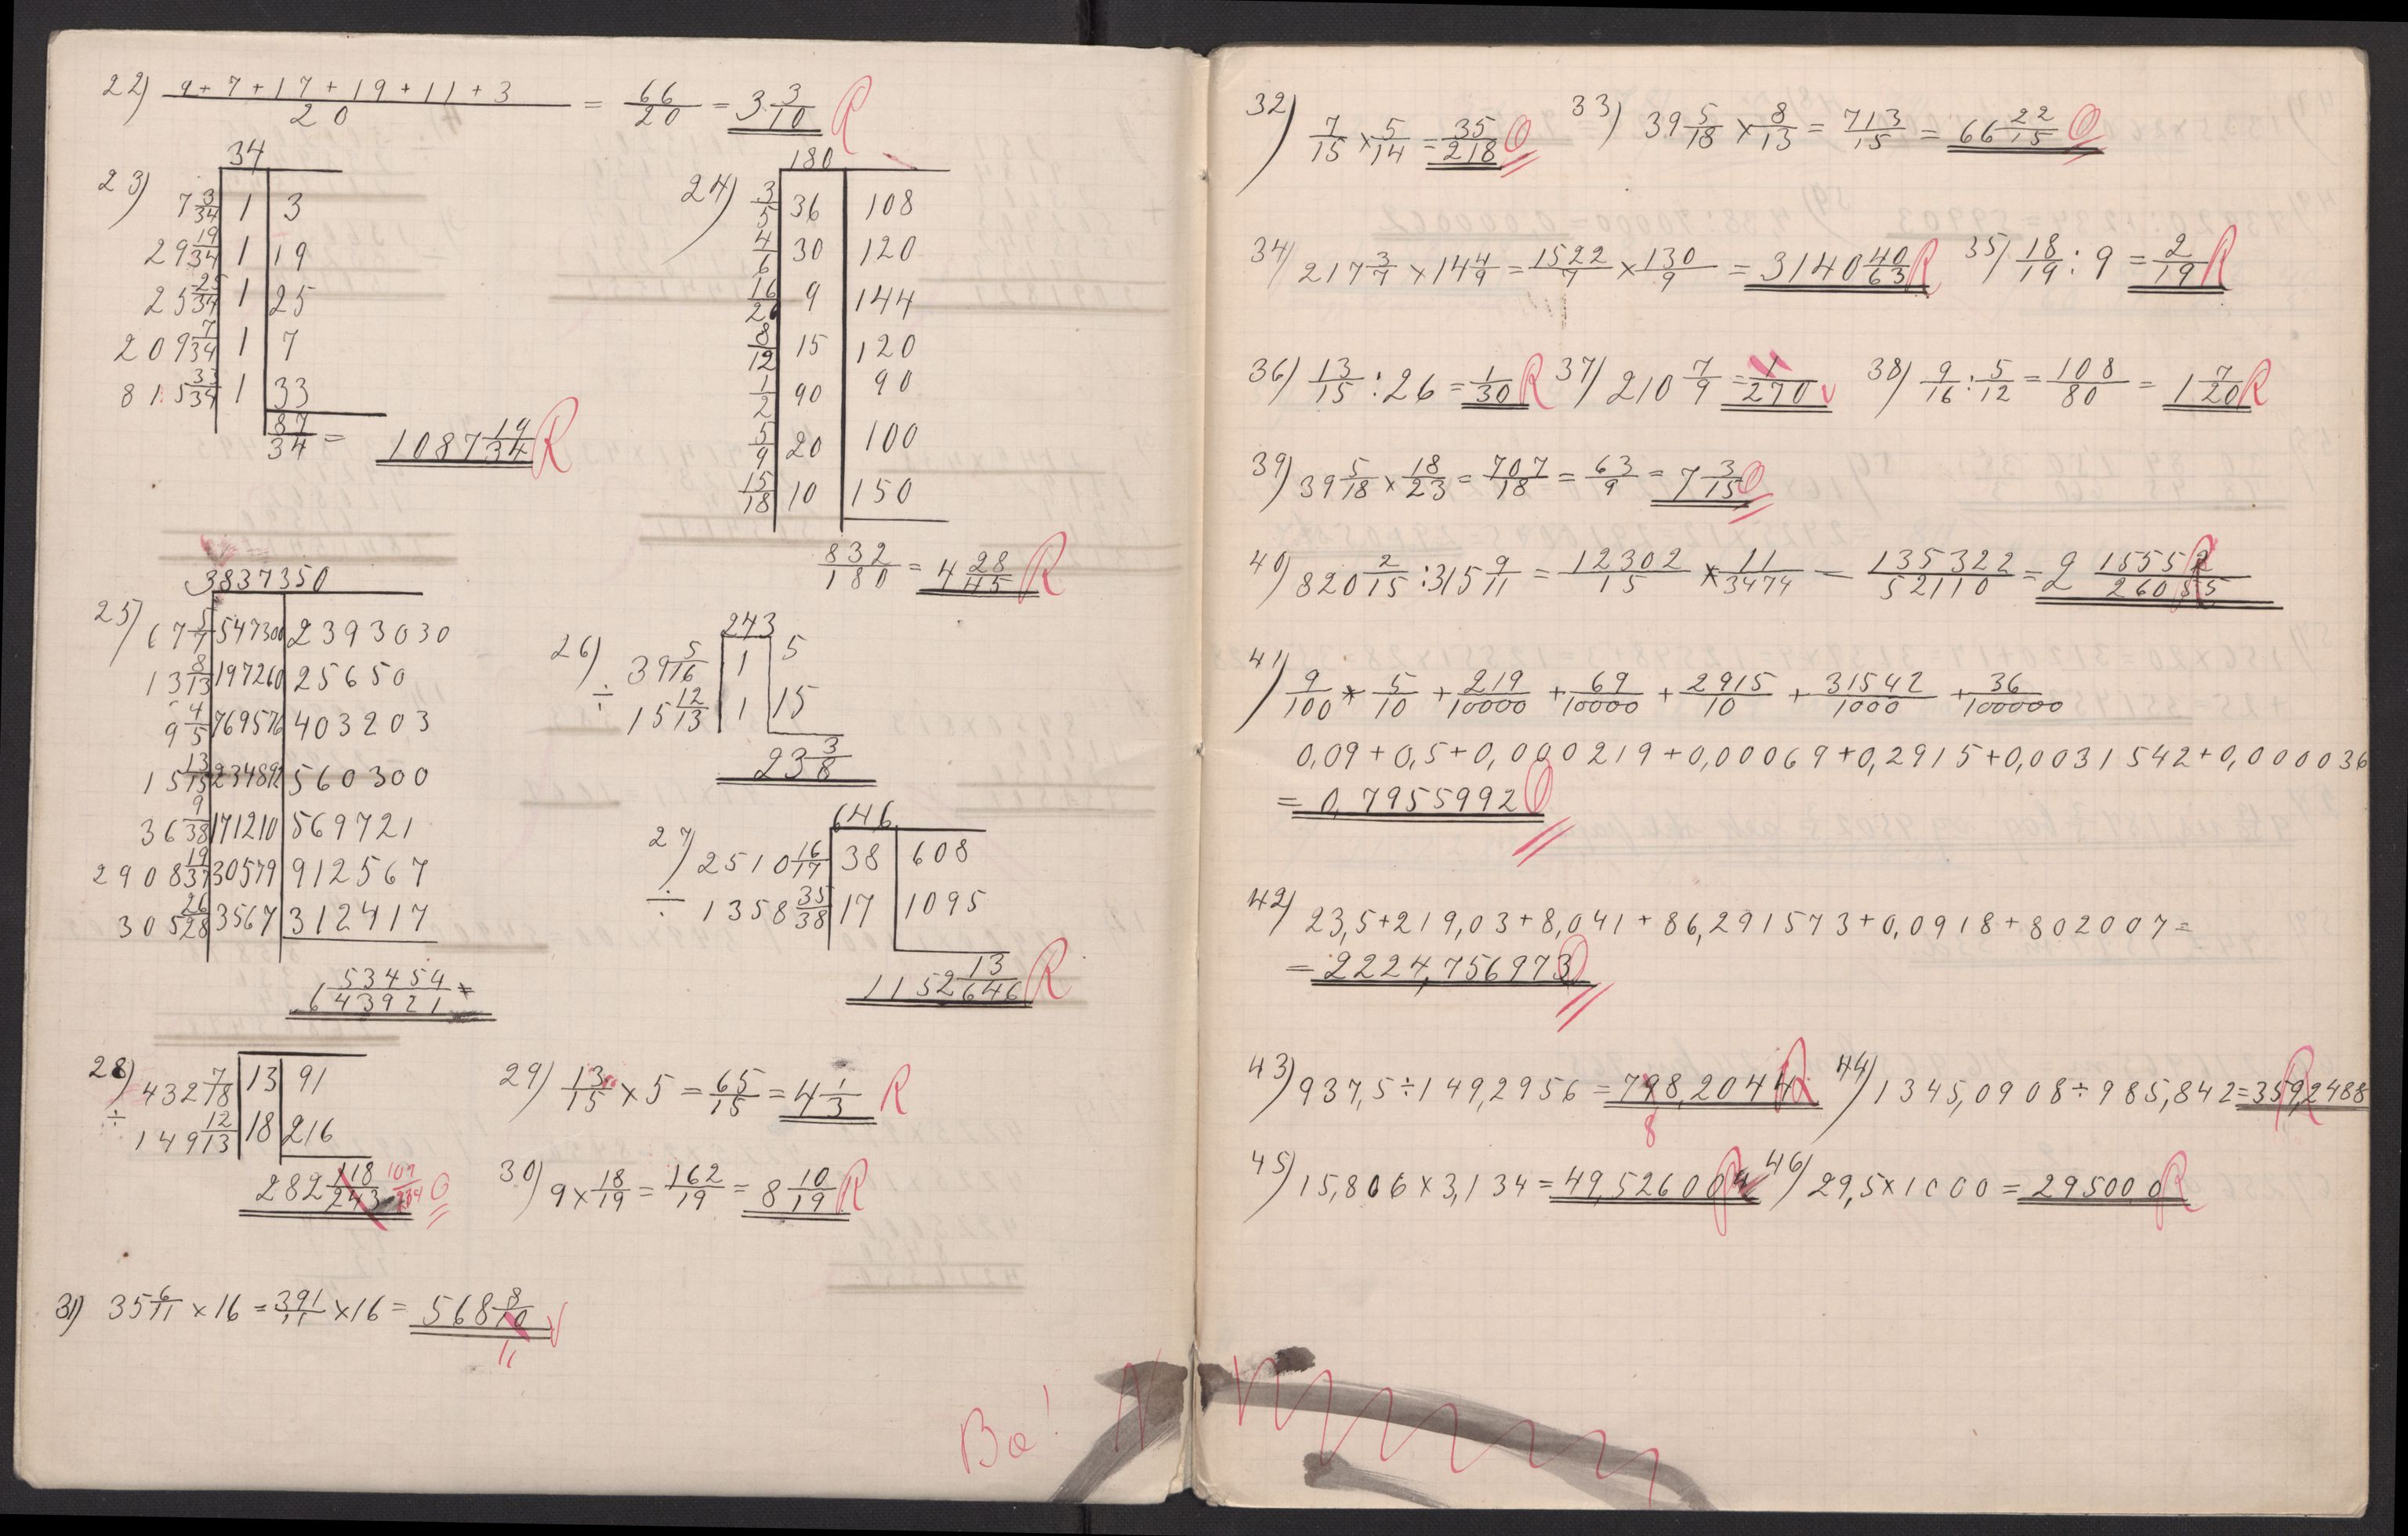 22) 9+7+17+19+11+3 / 20 = 66/20 = 3 3/10 R
23) 34
7 3/34 | 1 | 3
29 19/34 | 1 | 19
25 25/34 | 1 | 25
209 7/34 | 1 | 7
815 33/34 | 1 | 33
87/34 = 1087 19/34 R
24) 180
3/5 | 36 | 108
4/6 | 30 | 120
16/20 | 9 | 144
8/12 | 15 | 120
1/2 | 90 | 90
5/9 | 20 | 100
15/18 | 10 | 150
832/180 = 4 28/45 R
25) 3837350
67 5/7 | 547300 | 2393030
13 8/13 | 197260 | 25650
9 4/5 | 769576 | 403203
15 13/15 | 234892 | 560300
36 9/38 | 171210 | 569721
2908 19/37 | 30579 | 912567
305 26/28 | 3567 | 312417
6 53454/43921
26) 243
39 5/16 | 1 | 5
÷ 15 12/13 | 1 | 15
23 3/8
27) 646
2510 16/17 | 38 | 608
÷ 1358 35/38 | 17 | 1095
1152 13/646 R
28) 432 7/18 | 13 | 91
÷ 149 12/13 | 18 | 216
282 118/243 109/234 O
29) 13/15 × 5 = 65/15 = 4 1/3 R
30) 9 × 18/19 = 162/19 = 8 10/19 R
31) 35 6/11 × 16 = 391/11 × 16 = 568 8/10 V
11
Ba!
32) 7/15 × 5/14 = 35/218 O
33) 39 5/18 × 8/13 = 713/15 = 66 22/15 O
34) 217 3/7 × 14 4/9 = 1522/7 × 130/9 = 3140 40/63 R
35) 18/19 : 9 = 2/19 R
36) 13/15 : 26 = 1/30 R
37) 210 7/9 = 1/270 V
38) 9/16 : 5/12 = 108/80 = 1 7/20 R
39) 39 5/18 × 18/23 = 707/18 = 63/9 = 7 3/15 O
40) 820 2/15 : 315 9/11 = 12302/15 × 11/3474 = 135322/52110 = 2 15552/26055 R
41) 9/100 + 5/10 + 219/10000 + 69/10000 + 2915/10 + 31542/1000 + 36/100000
0,09+0,5+0,000219+0,00069+0,2915+0,0031542+0,000036
= 0,7955992 O
42) 23,5+219,03+8,041+86,291573+0,0918+802007=
= 2224,756973 O
43) 937,5÷149,2956 = 798,2044 R
8
44) 1345,0908÷985,842=359,2488 R
45) 15,806×3,134 = 49,526004 R
46) 29,5×1000 = 29500 0 R